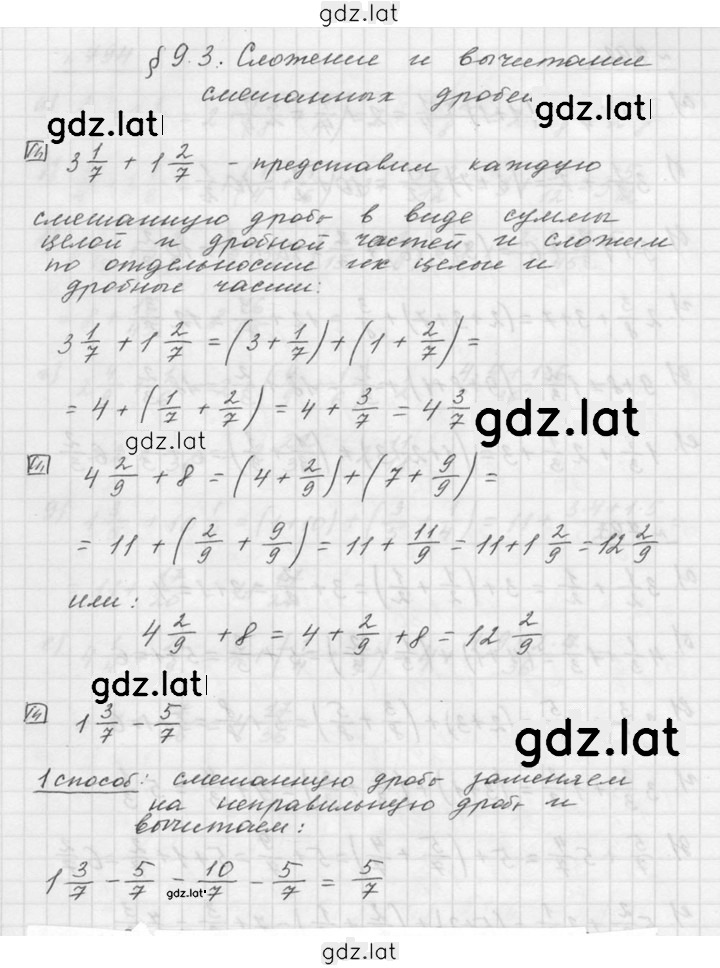 gdz.lat
§ 9.3. Сложение и вычитание
смешанных дробей
gdz.lat
3 1/7 + 1 2/7 - представим каждую
смешанную дробь в виде суммы
целой и дробной частей и сложим
по отдельности их целые и
дробные части:
3 1/7 + 1 2/7 = (3 + 1/7) + (1 + 2/7) =
= 4 + (1/7 + 2/7) = 4 + 3/7 = 4 3/7
gdz.lat
gdz.lat
4 2/9 + 8 = (4 + 2/9) + (7 + 9/9) =
= 11 + (2/9 + 9/9) = 11 + 11/9 = 11 + 1 2/9 = 12 2/9
или:
4 2/9 + 8 = 4 + 2/9 + 8 = 12 2/9
gdz.lat
1 3/7 - 5/7
gdz.lat
1 способ: смешанную дробь заменяем
на неправильную дробь и
вычитаем:
1 3/7 - 5/7 = 10/7 - 5/7 = 5/7
gdz.lat
gdz.lat